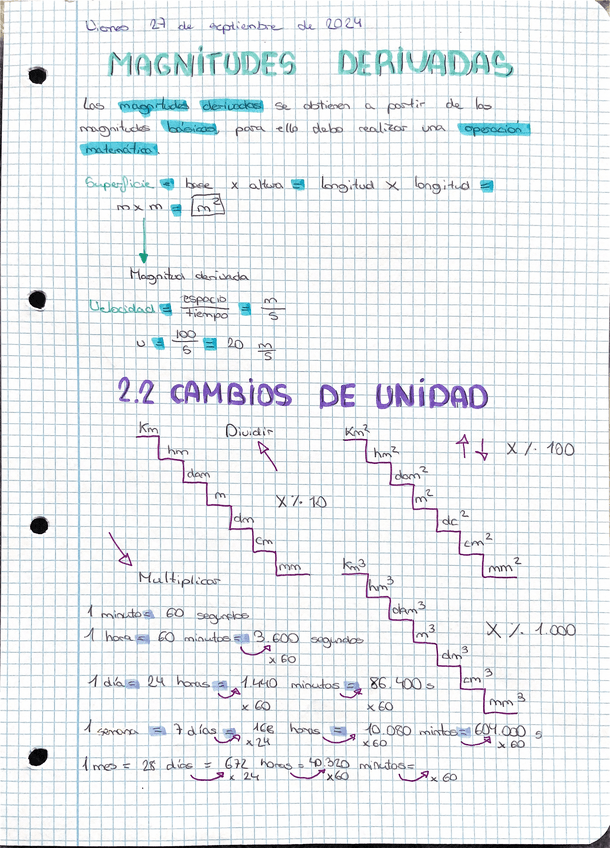 Viernes 27 de septiembre de 2024
MAGNITUDES DERIVADAS
Las magnitudes derivadas se obtienen a partir de las
magnitudes básicas, para ello debo realizar una operación
matemática.
Superficie = base x altura = longitud x longitud =
m x m = m²
Magnitud derivada
Velocidad = espacio/tiempo = m/s
v = 100/5 = 20 m/s
2.2 CAMBIOS DE UNIDAD
Km
hm
dam
m
dm
cm
mm
Dividir
X /. 10
Multiplicar
Km²
hm²
dam²
m²
dc²
cm²
mm²
X /. 100
Km³
hm³
dam³
m³
dm³
cm³
mm³
X /. 1.000
1 minuto = 60 segundos
1 hora = 60 minutos = 3.600 segundos
x 60
1 día = 24 horas = 1.440 minutos = 86.400 s
x 60 x 60
1 semana = 7 días = 168 horas = 10.080 mintos = 604.000 s
x 24 x 60 x 60
1 mes = 28 días = 672 horas = 40.320 minutos =
x 24 x60 x 60